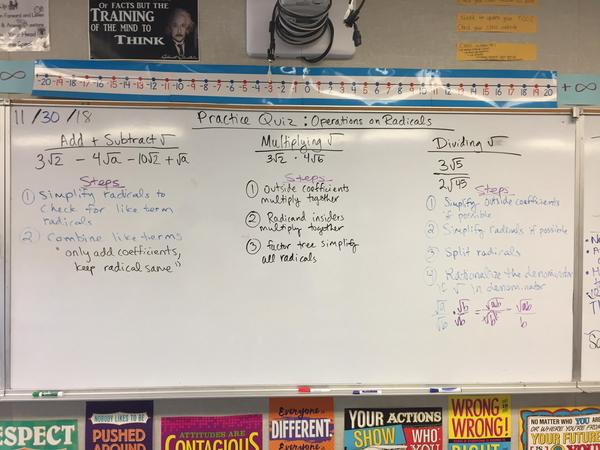 OF FACTS BUT THE
TRAINING
OF THE MIND TO
THINK
-∞
-20 -19 -18 -17 -16 -15 -14 -13 -12 -11 -10 -9 -8 -7 -6 -5 -4 -3 -2 -1 0 1 2 3 4 5 6 7 8 9 10 11 12 13 14 15 16 17 18 19 20
+∞
11/30/18
Practice Quiz: Operations on Radicals
Add + Subtract √
3√2 - 4√a - 10√2 + √a
Steps
① Simplify radicals to
check for like term
radicals
② Combine like terms
"only add coefficients,
keep radical same"
Multiplying √
3√2 · 4√6
Steps
① Outside coefficients
multiply together
② Radicand insiders
multiply together
③ Factor tree simplify
all radicals
Dividing √
3√5
2√45
Steps
① Simplify outside coefficients
if possible
② Simplify radicals if possible
③ Split radicals
④ Rationalize the denominator
if √ in denominator
√a/√b · √b/√b = √ab/√b² = √ab/b
RESPECT
NOBODY LIKES TO BE
PUSHED
AROUND
ATTITUDES ARE
CONTAGIOUS
Everyone is
DIFFERENT
YOUR ACTIONS
SHOW WHO
YOU
WRONG!
WRONG!
NO MATTER WHO YOU ARE
OR WHERE YOU'RE FROM